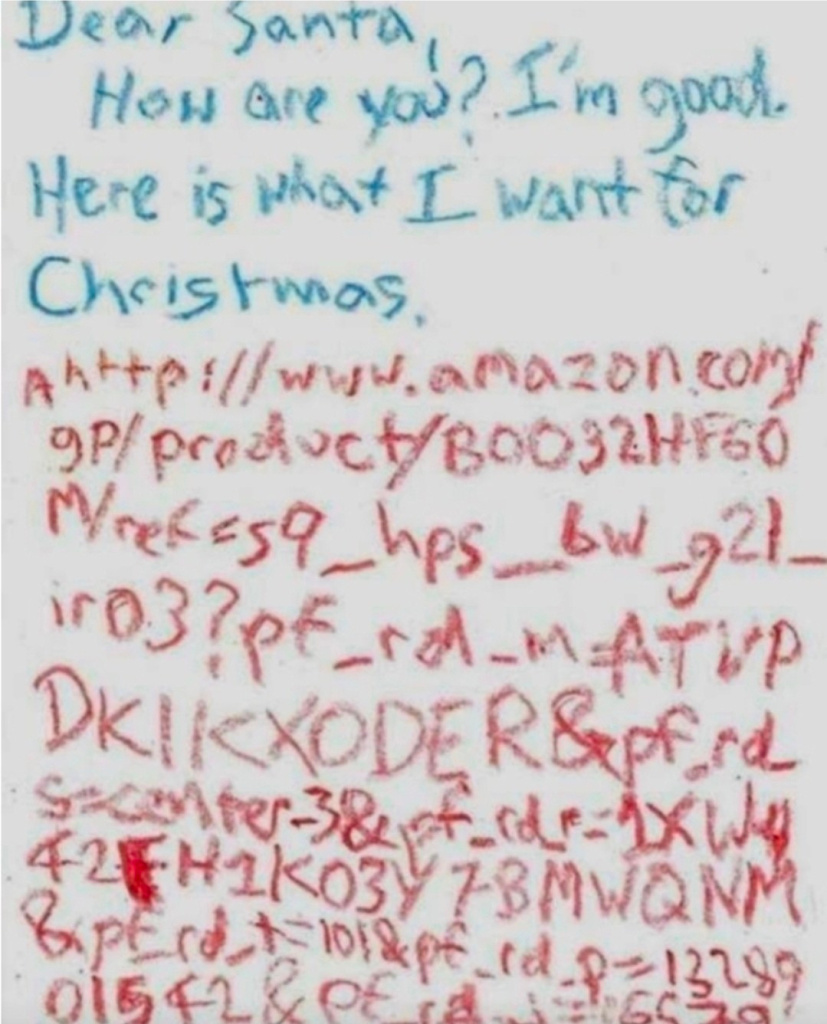 Dear Santa,
How are you? I'm good.
Here is what I want for
Christmas.
A http://www.amazon.com/
gp/product/B0032HF60
M/ref=s9_hps_bw_g21_
ir03?pf_rd_m=ATVP
DKIKX0DER&pf_rd_
s=center-3&pf_rd_r=1XWY
42FH1K03Y7BMWQNM
&pf_rd_t=101&pf_rd_p=13289
01542&pf_rd_i=